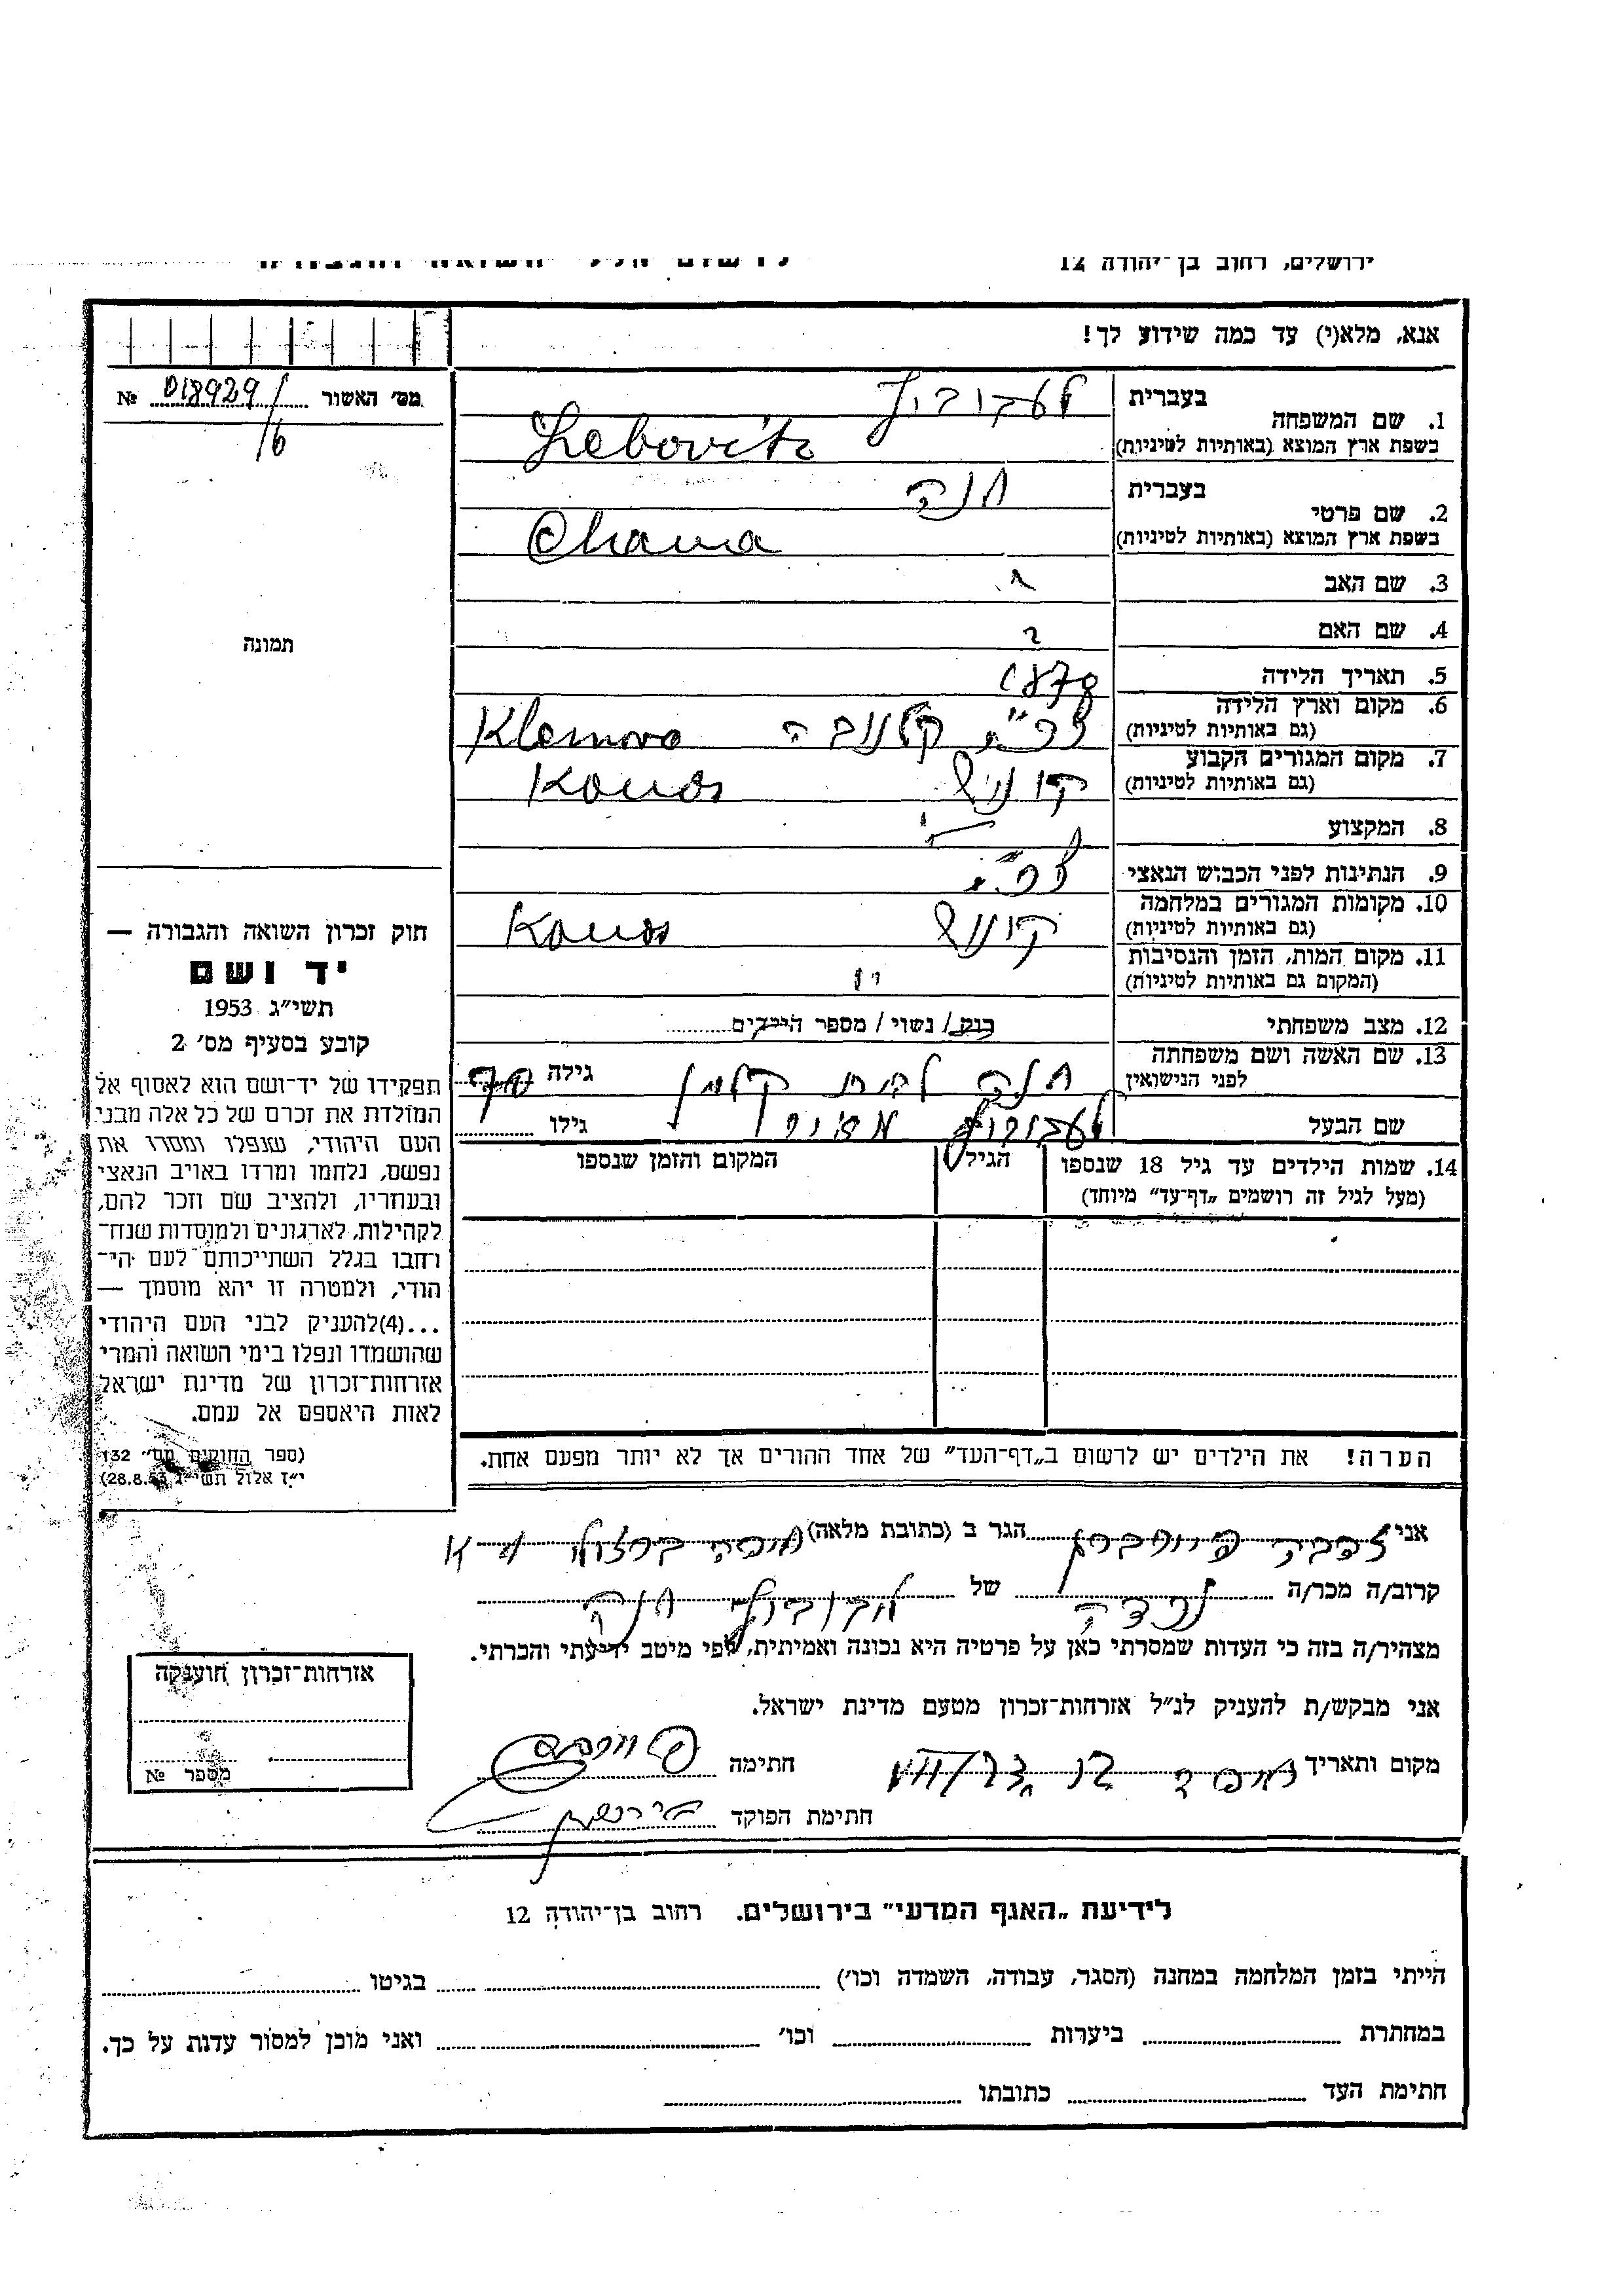 ירושלים, רחוב בן־יהודה 12
אנא, מלא(י) עד כמה שידוע לך!
מס׳ האשור 018929/ №
/6
1. שם המשפחה
בעברית
לעבוביץ
בשפת ארץ המוצא (באותיות לטיניות)
Lebovits
2. שם פרטי
בעברית
חנה
בשפת ארץ המוצא (באותיות לטיניות)
Chana
3. שם האב
4. שם האם
5. תאריך הלידה 1878
6. מקום וארץ הלידה
(גם באותיות לטיניות)
צ׳כ״ס קלנובה Klenova
7. מקום המגורים הקבוע
(גם באותיות לטיניות)
קונוס Konus
8. המקצוע
9. הנתינות לפני הכבוש הנאצי
10. מקומות המגורים במלחמה
(גם באותיות לטיניות)
קונוס Konus
11. מקום המות, הזמן והנסיבות
(המקום גם באותיות לטיניות)
12. מצב משפחתי רווק / נשוי / מספר הילדים
13. שם האשה ושם משפחתה
לפני הנישואין
חנה לבית קלמן גילה
שם הבעל לעבוביץ מאיר גילו
14. שמות הילדים עד גיל 18 שנספו
(מעל לגיל זה רושמים „דף־עד״ מיוחד)
הגיל
המקום והזמן שנספו
הערה! את הילדים יש לרשום ב„דף־העד״ של אחד ההורים אך לא יותר מפעם אחת.
תמונה
חוק זכרון השואה והגבורה —
יד ושם
תשי״ג 1953
קובע בסעיף מס׳ 2
תפקידו של יד־ושם הוא לאסוף אל
המולדת את זכרם של כל אלה מבני
העם היהודי, שנפלו ומסרו את
נפשם, נלחמו ומרדו באויב הנאצי
ובעוזריו, ולהציב שם וזכר להם,
לקהילות, לארגונים ולמוסדות שנח־
רחבו בגלל השתייכותם לעם הי־
הודי, ולמטרה זו יהא מוסמך —
...(4)להעניק לבני העם היהודי
שהושמדו ונפלו בימי השואה והמרי
אזרחות־זכרון של מדינת ישראל
לאות היאספם אל עמם.
(ספר החוקים מס׳ 132
י״ז אלול תשי״ג 28.8.53)
אני הגר ב (כתובת מלאה) חיפה
קרוב/ה מכר/ה נכדה של לבוביץ חנה
מצהיר/ה בזה כי העדות שמסרתי כאן על פרטיה היא נכונה ואמיתית, לפי מיטב ידיעתי והכרתי.
אני מבקש/ת להעניק לנ״ל אזרחות־זכרון מטעם מדינת ישראל.
מקום ותאריך חיפה חתימה
חתימת הפוקד
אזרחות־זכרון הוענקה
מספר №
לידיעת „האגף המדעי״ בירושלים. רחוב בן־יהודה 12
הייתי בזמן המלחמה במחנה (הסגר, עבודה, השמדה וכו׳) בגיטו
במחתרת ביערות וכו׳ ואני מוכן למסור עדות על כך.
חתימת העד כתובתו